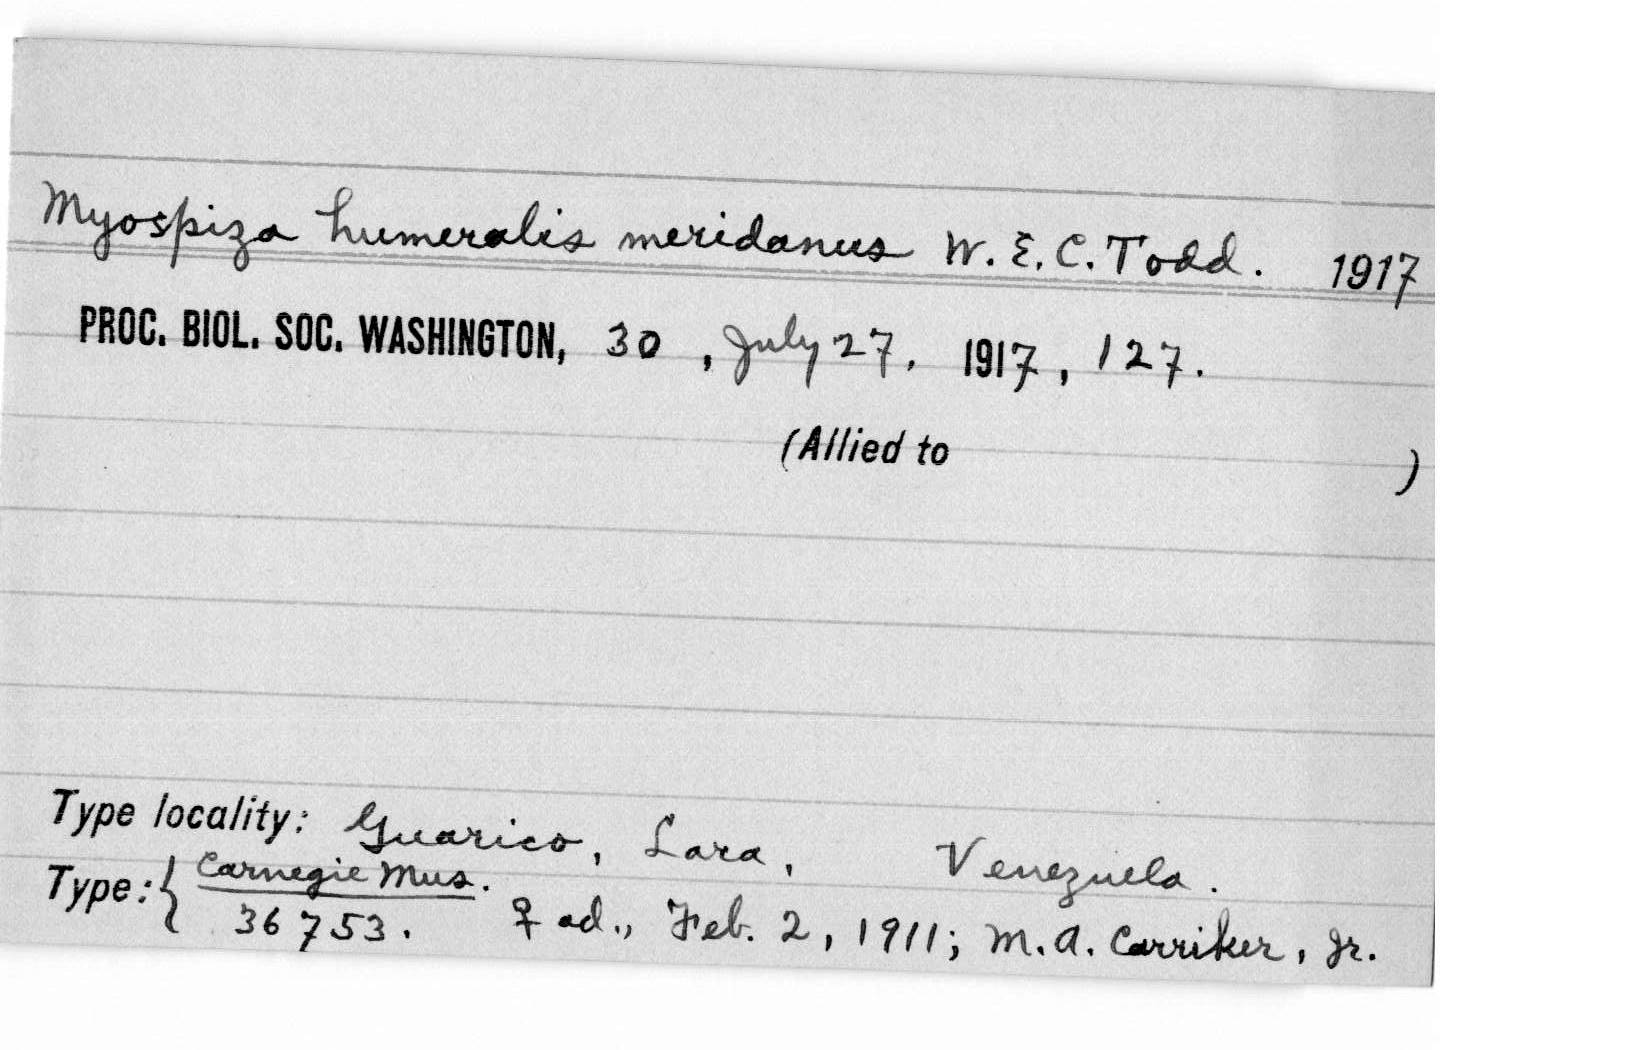 Myospiza humeralis meridanus W. E. C. Todd. 1917
PROC. BIOL. SOC. WASHINGTON, 30, July 27. 1917, 127.
(Allied to )
Type locality: Guarico, Lara, Venezuela.
Type: { Carnegie Mus.
36753. ♀ ad., Feb. 2, 1911; M. A. Carriker, Jr.